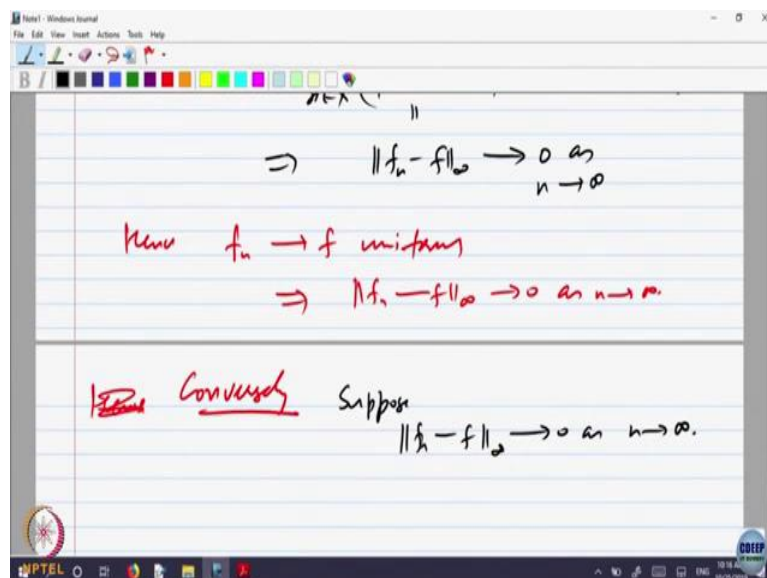 Note1 - Windows Journal
File Edit View Insert Actions Tools Help
B I
||
⇒ ||f_n - f||_∞ → 0 as
n → ∞
Hence f_n → f uniformly
⇒ ||f_n - f||_∞ → 0 as n → ∞.
Conversely Suppose
||f_n - f||_∞ → 0 as n → ∞.
NPTEL
CDEEP
ENG